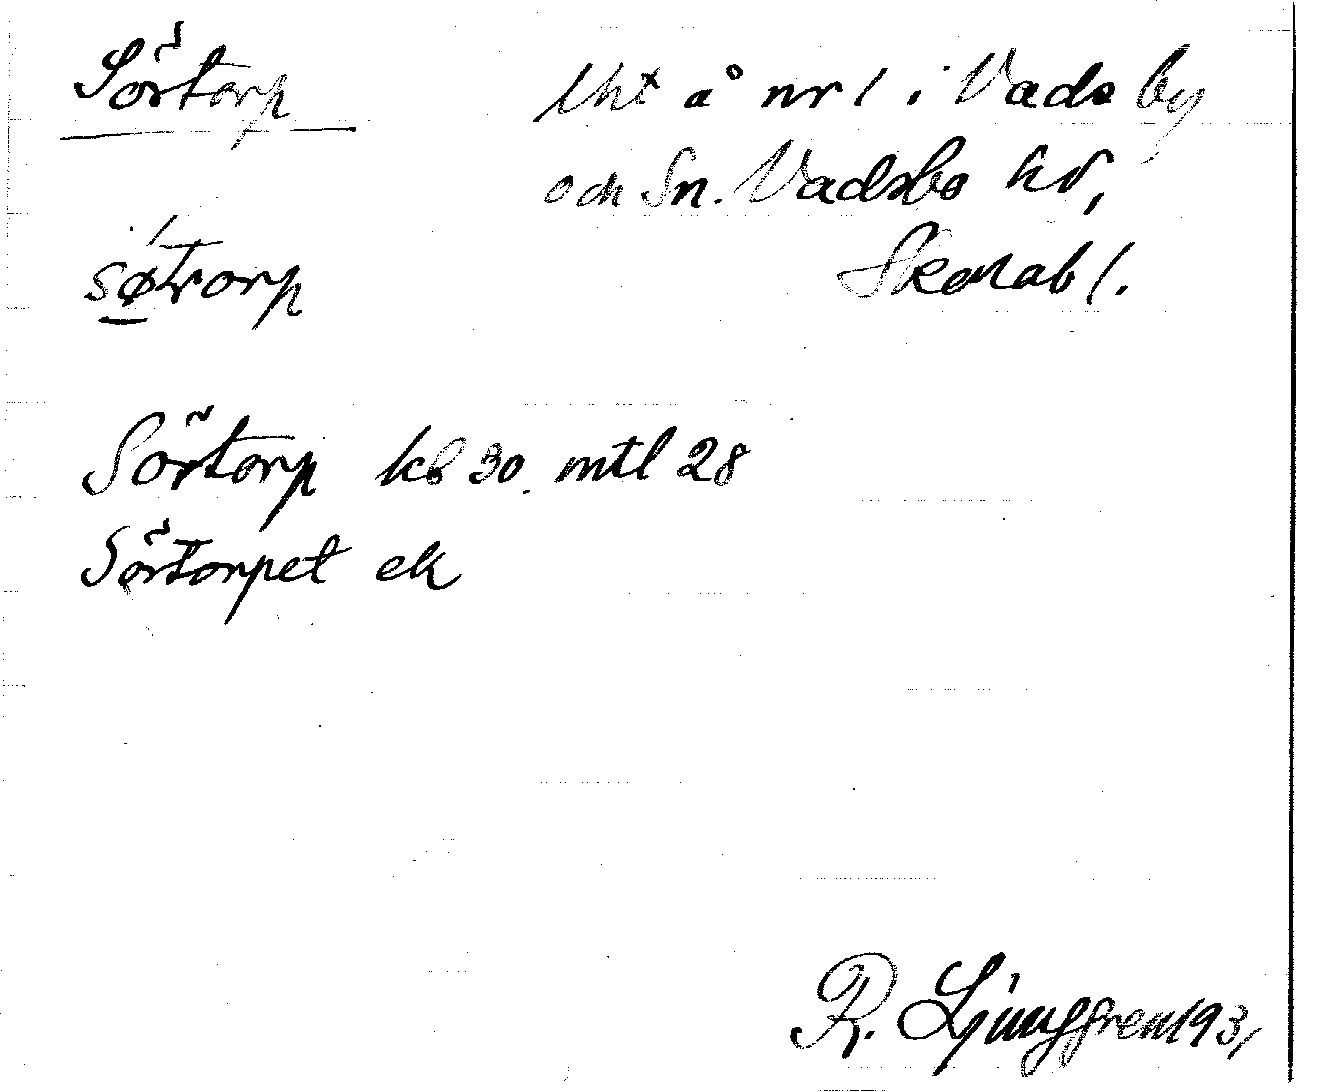 Sörtorp
Uht å nr 1 i Vads by
och Sn. Vadsbo hd,
Skarab l.
Sörtorp kb 30. mtl 28
Sörtorpet ek
R. Ljunggren 193